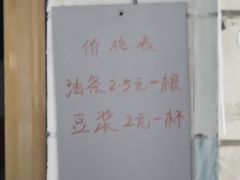 价格表
油条2.5元一根
豆浆2元一杯